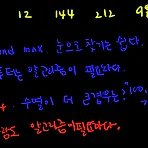 12 144 212 98
and max. 눈으로 찾기는 쉽다.
알고리즘이 필요하다.
+ 수열이 더 길경우는? 100,
람도 알고리즘이필요하다.